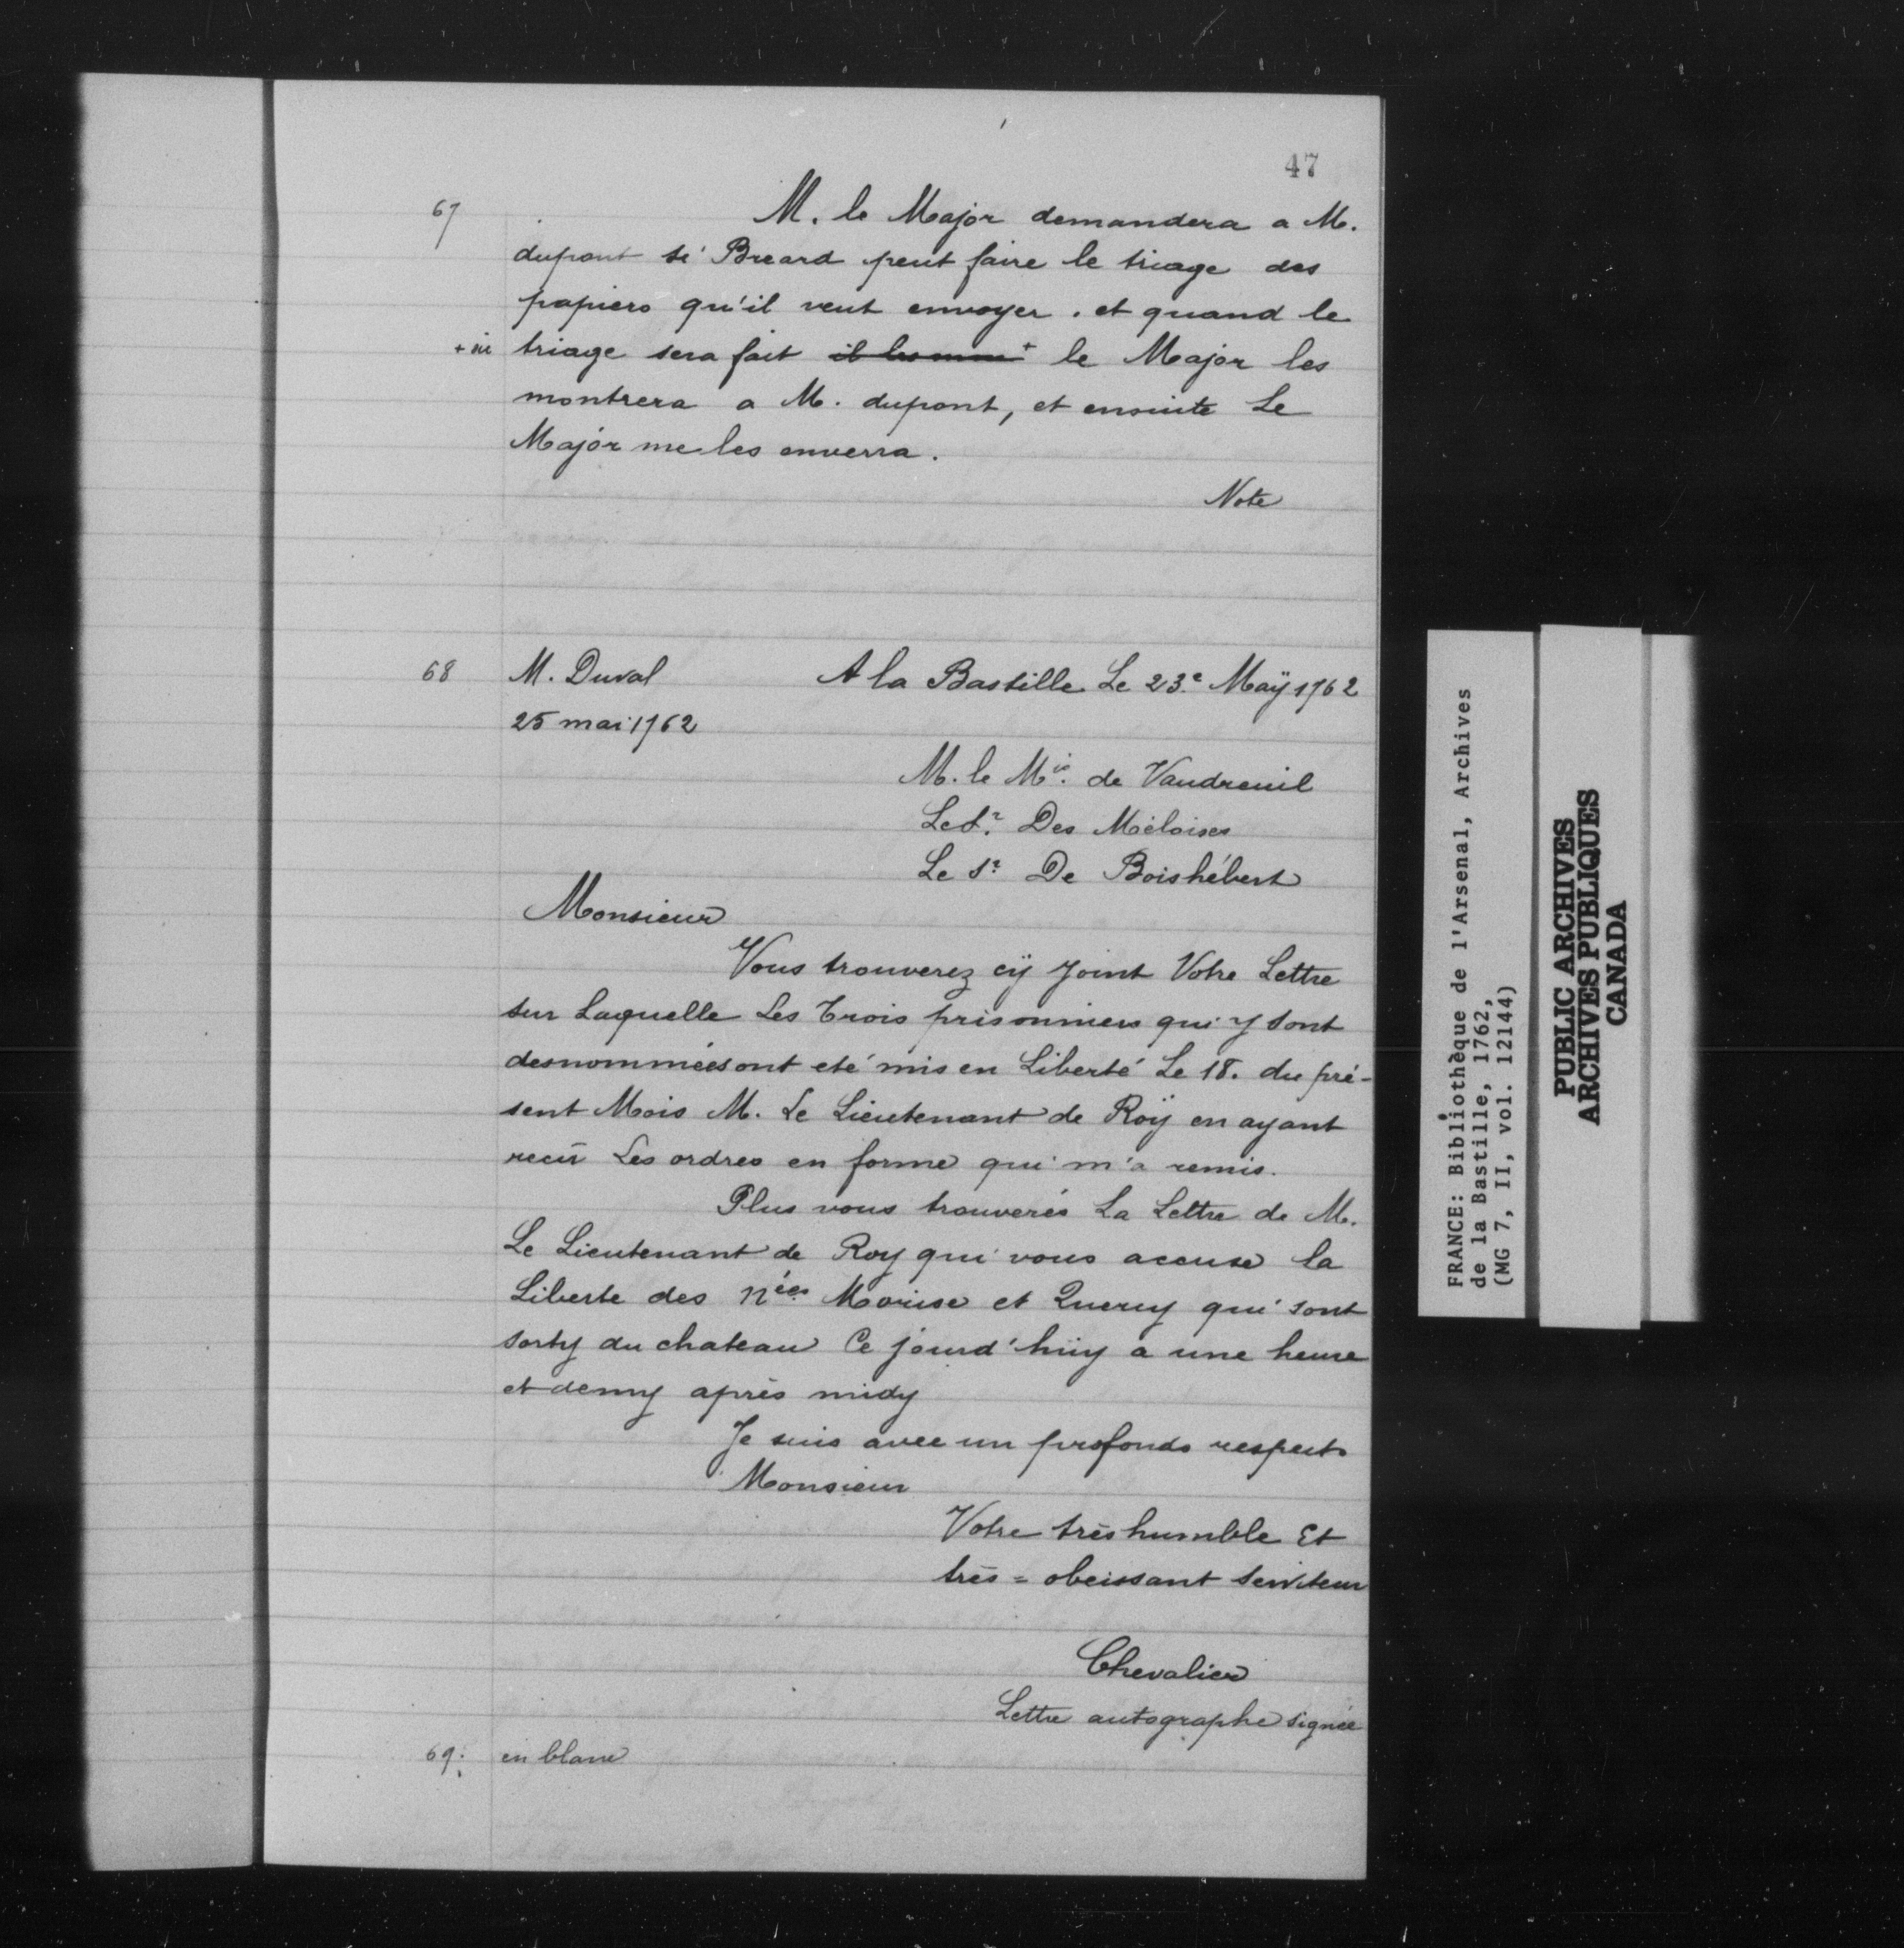 47
67 M. le Major demandera a M.
dupont si Breard peut faire le triage des
papiers qu'il veut envoyer. et quand le
triage sera fait ~~il les mon~~ + le Major les
montrera a M. dupont, et ensuite Le
Major me les enverra.
Note
68 M. Duval A la Bastille Le 23.e Maÿ 1762
25 mai 1762
M. le M.is de Vaudreuil
Le S.r Des Méloises
Le S.r De Boishébert
Monsieur
Vous trouverez cÿ Joint Votre Lettre
sur Laquelle Les Trois prisonniers qui y sont
desnommées ont eté mis en Liberté Le 18. du pré-
sent Mois M. Le Lieutenant de Roÿ en ayant
recû Les ordres en forme qui m'a remis.
Plus vous trouverés La Lettre de M.
Le Lieutenant de Roy qui vous accuse la
Liberte des Nées Morise et Quercy qui sont
sorty du chateau Ce jourd'hüy a une heure
et demy après midy
Je suis avec un profonds respects
Monsieur
Votre très humble Et
très = obeissant Serviteur
Chevalier
Lettre autographe signée
69. en blanc
FRANCE: Bibliothèque de l'Arsenal, Archives
de la Bastille, 1762,
(MG 7, II, vol. 12144)
PUBLIC ARCHIVES
ARCHIVES PUBLIQUES
CANADA